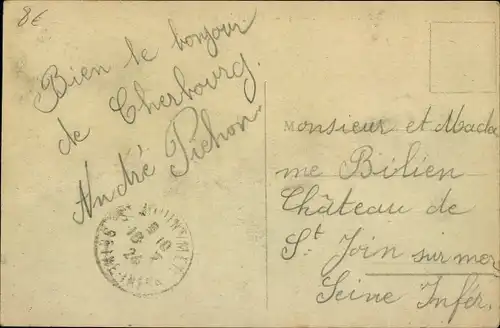 8€
Bien le bonjour
de Cherbourg.
André Pichon.
Monsieur et Mada
me Bilien
Château de
St Join sur mer
Seine Infér.